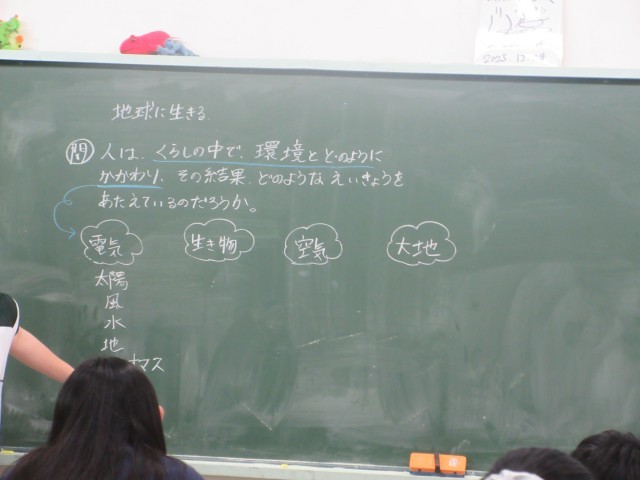 地球に生きる.
問 人は、くらしの中で、環境とどのように
かかわり、その結果、どのようなえいきょうを
あたえているのだろうか。
電気 生き物 空気 大地
太陽
風
水
地
マス